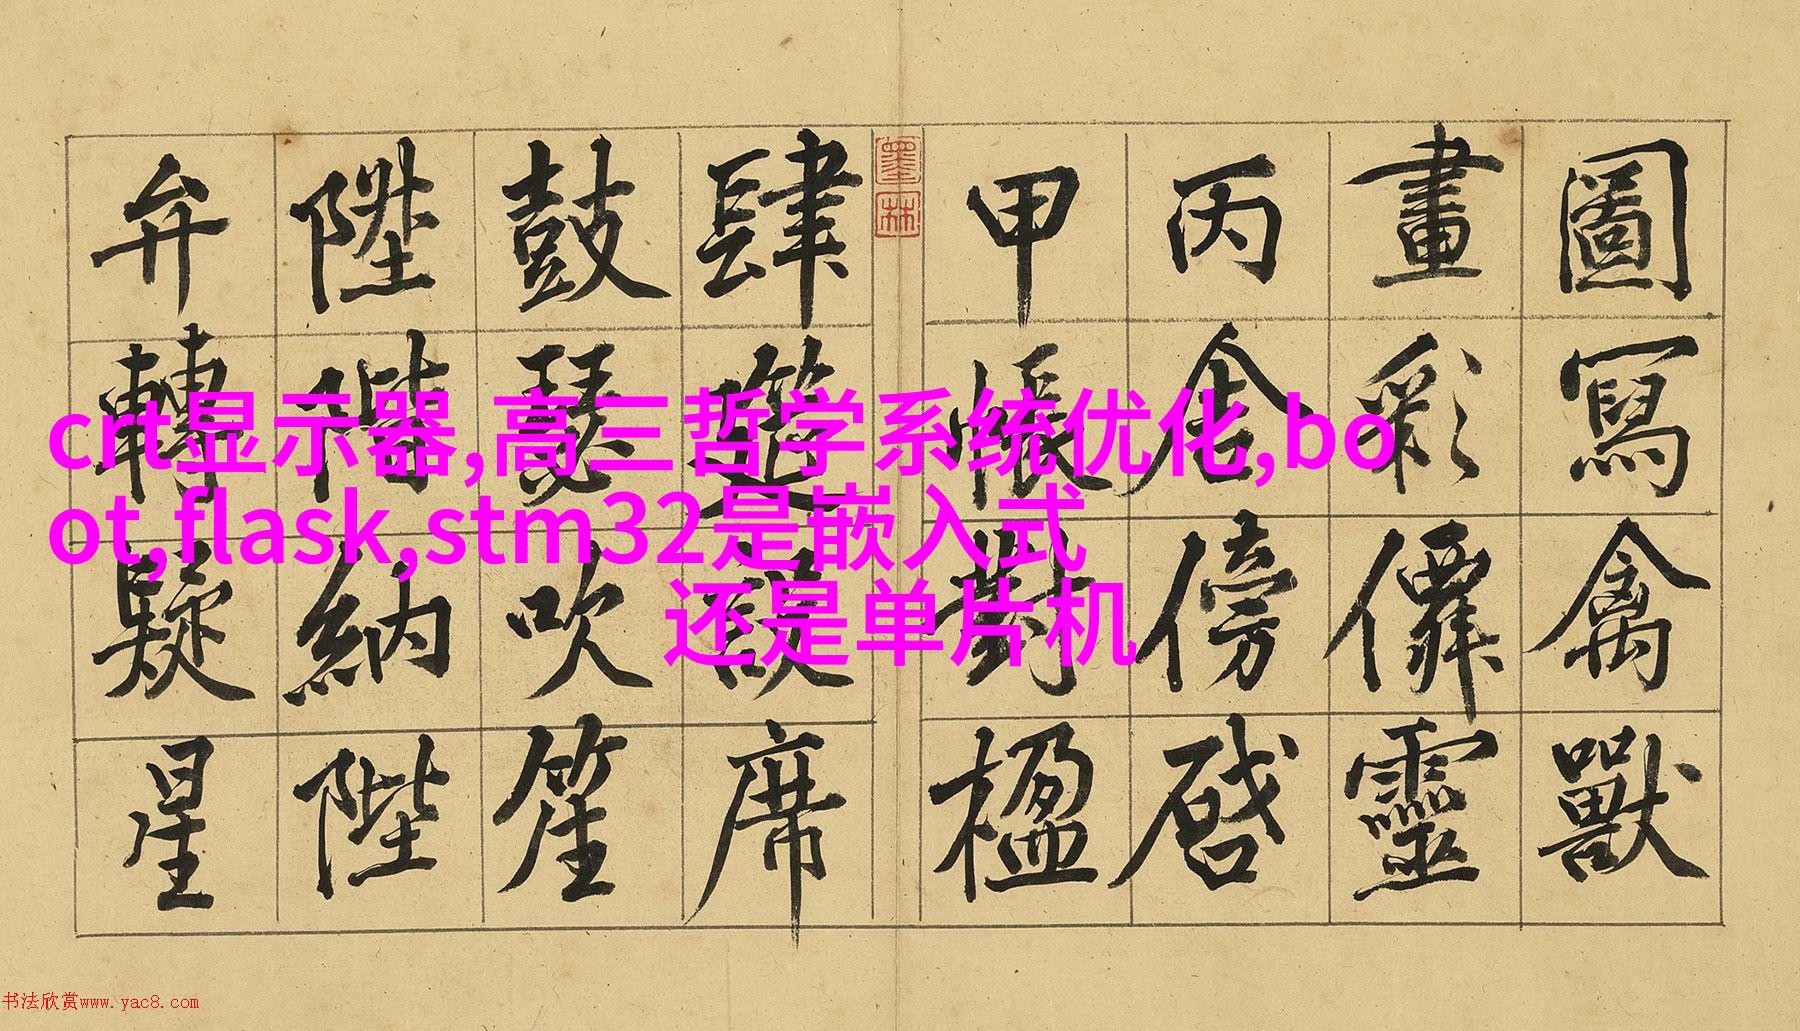 圖寫禽獸
畫彩僊靈
丙舍傍啓
甲帳對楹
墨林
肆筵設席
鼓瑟吹笙
陞階納陛
弁轉疑星
crt显示器,高三哲学系统优化,bo
ot,flask,stm32是嵌入式
还是单片机
书法欣赏www.yac8.com